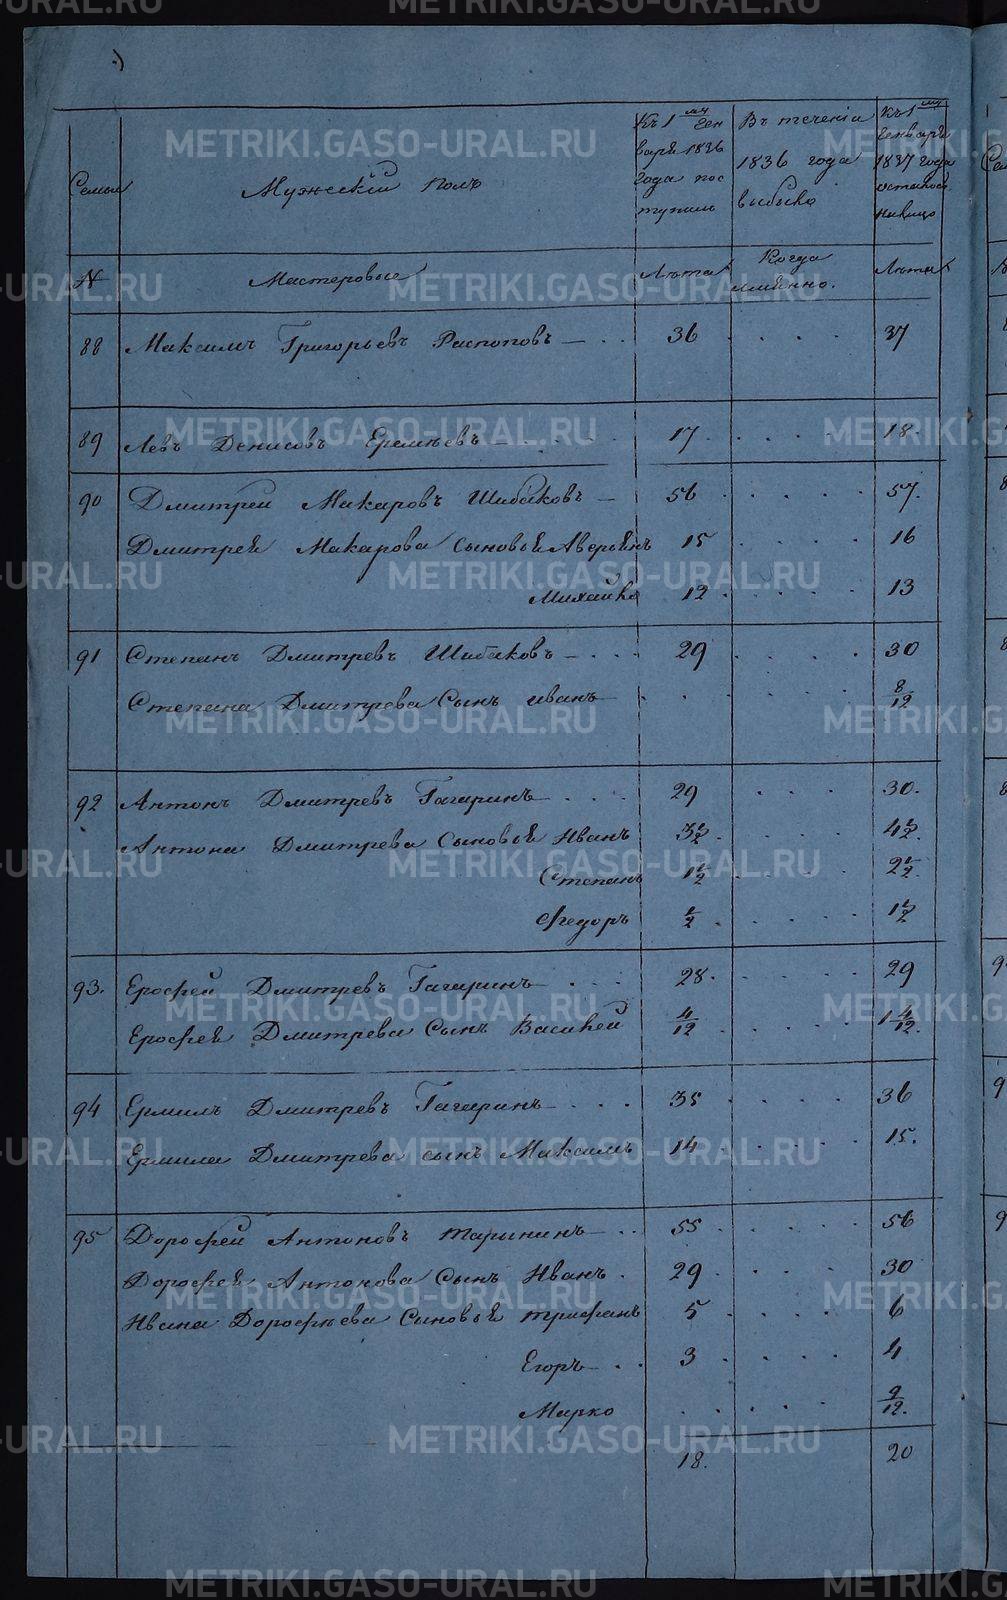 Семьи
Мужескій полъ
Къ 1му Ген
варя 1836
года пос
тупило
Въ теченіи
1836 года
выбыло
Къ 1му
Генваря
1837 года
N
Мастеровые
Лѣта
Когда
имѣнно.
Лѣта
88 Максимъ Григорьевъ Распоповъ 36 37
89 Левъ Денисовъ Еремѣевъ 17 18.
90 Дмитрей Макаровъ Шибаковъ 56 57.
Дмитрея Макарова сыновья Аверьянъ 15 16
Михайло 12 13
91 Степанъ Дмитревъ Шибаковъ 29 30
Степана Дмитрева Сынъ иванъ 8/12
92 Антонъ Дмитревъ Гагаринъ 29 30.
Антона Дмитрева Сыновья Иванъ 3 1/2 4 1/2.
Степанъ 1 1/2 2 1/2.
Федоръ 1/2 1 1/2
93. Ерофей Дмитревъ Гагаринъ 28. 29
Ерофея Дмитрева Сынъ Василей 4/12 1 4/12.
94 Ермилъ Дмитревъ Гагаринъ 35 36
Ермила Дмитрева сынъ Максимъ 14 15.
95 Дорофей Антоновъ Тарынинъ 55 56
Дорофея Антонова Сынъ Иванъ 29 30
Ивана Дорофѣева Сыновья трифанъ 5 6
Егоръ 3 4
Марко 9/12.
18. 20
METRIKI.GASO-URAL.RU